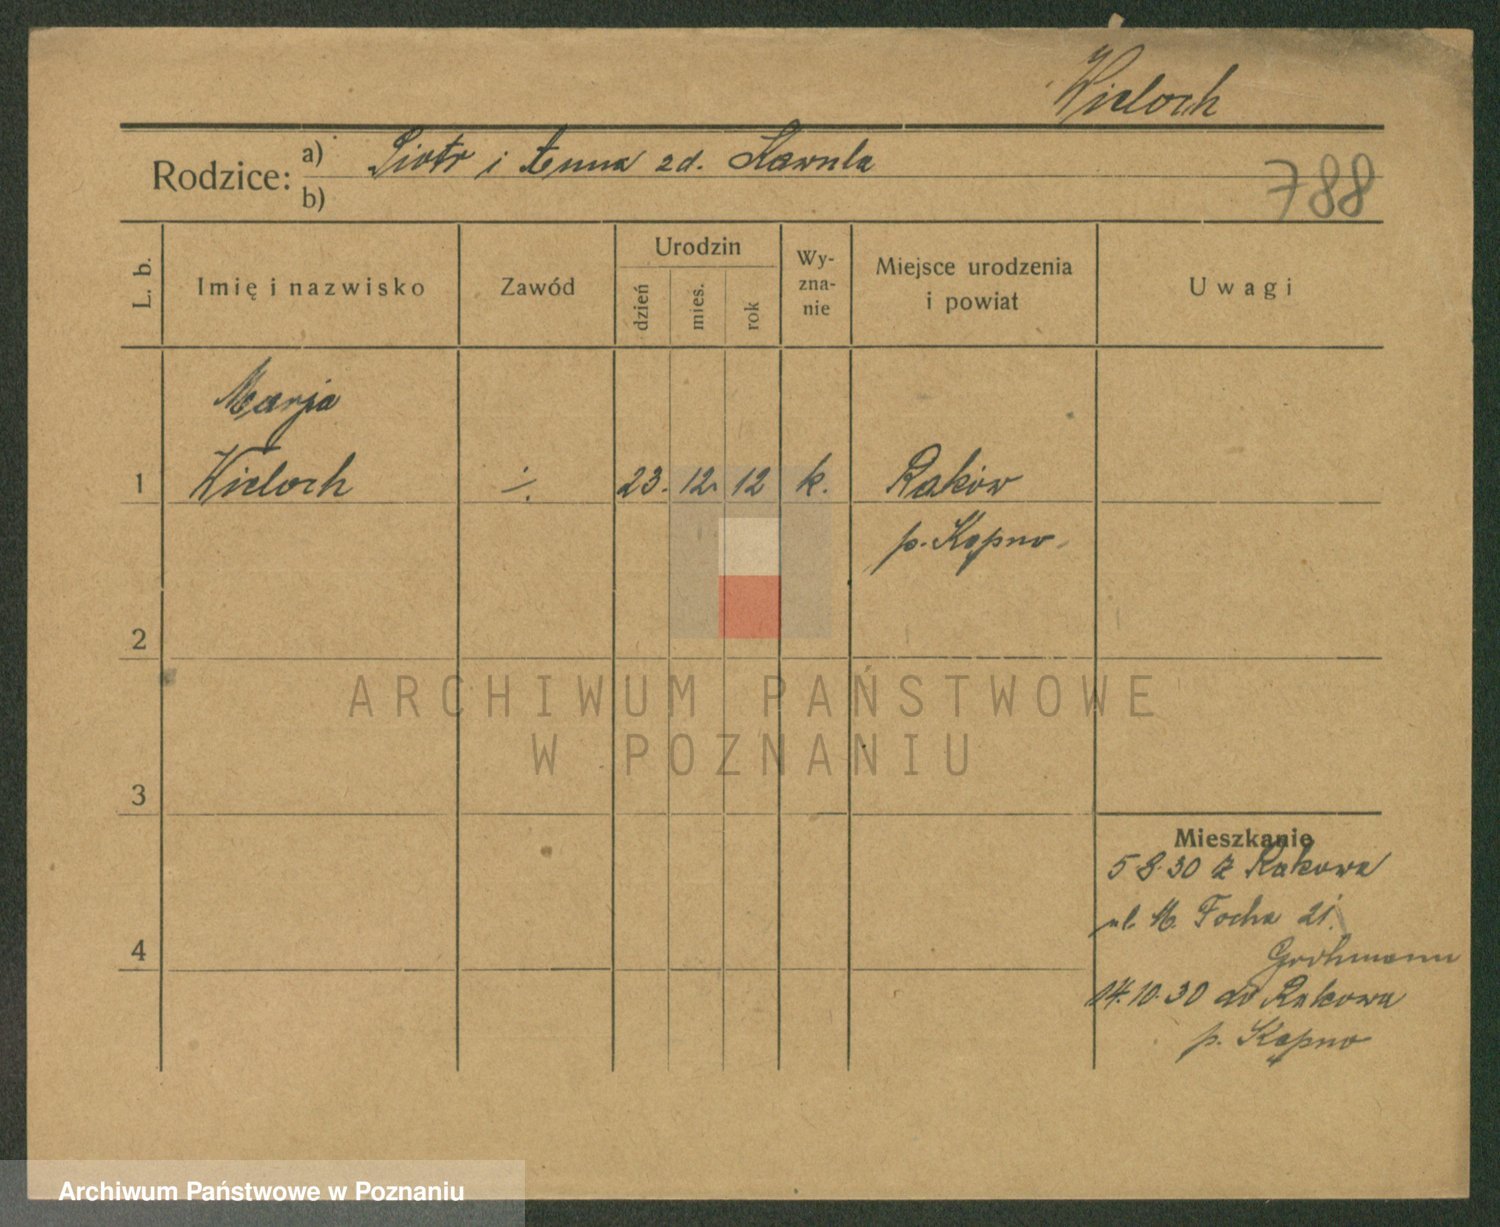 Wieloch
Rodzice: a) Piotr i Anna zd. Kawula
b)
788
L. b.
Imię i nazwisko
Zawód
Urodzin
dzień
mies.
rok
Wy-
zna-
nie
Miejsce urodzenia
i powiat
Uwagi
Marja
1 Wieloch ·/. 23. 12. 12 k. Raków
p. Kępno
2
ARCHIWUM PAŃSTWOWE
W POZNANIU
3
Mieszkanie
5.8.30 z Rakowa
ul. M. Focha 21.
Grohmann
4
14.10.30 do Rakowa
p. Kępno
Archiwum Państwowe w Poznaniu